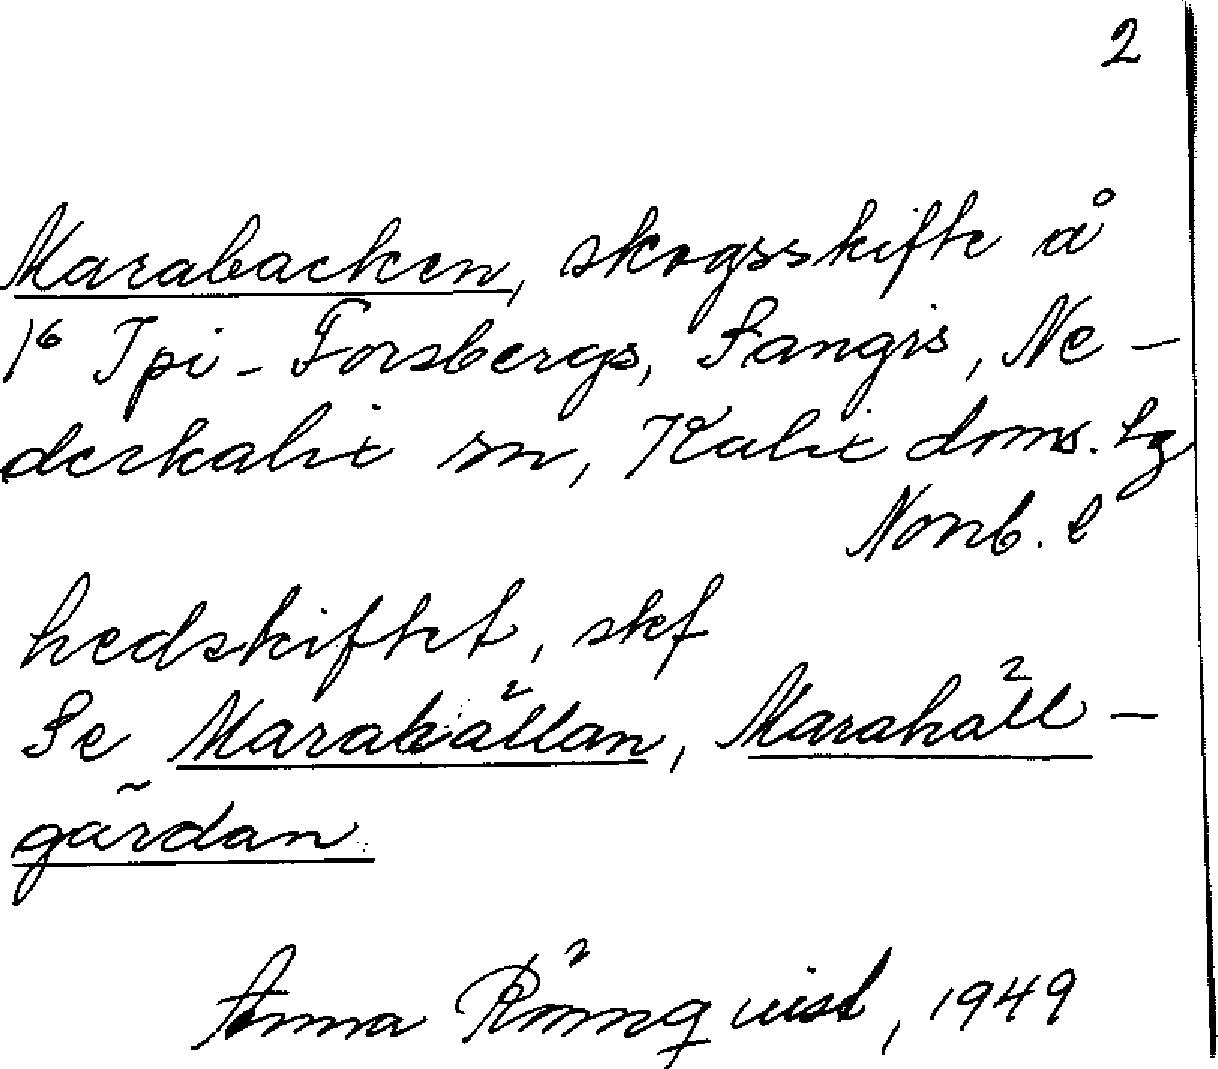 2
Marabacken, skogsskifte å
1⁶ Ipi-Forsbergs, Sangis, Ne-
derkalix sn, Kalix doms. lg
Norrb. l
hedskiftet, skf
Se Marakällan, Marakäll-
gärdan
Anna Rönnqvist, 1949